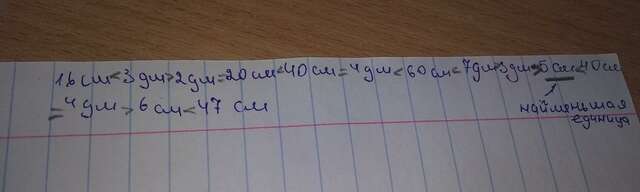 16 см<3 дм>2 дм=20 см<40 см=4 дм<60 см<7 дм>3 дм>5 см<40 см
=4 дм>6 см<47 см
наименьшая
единица